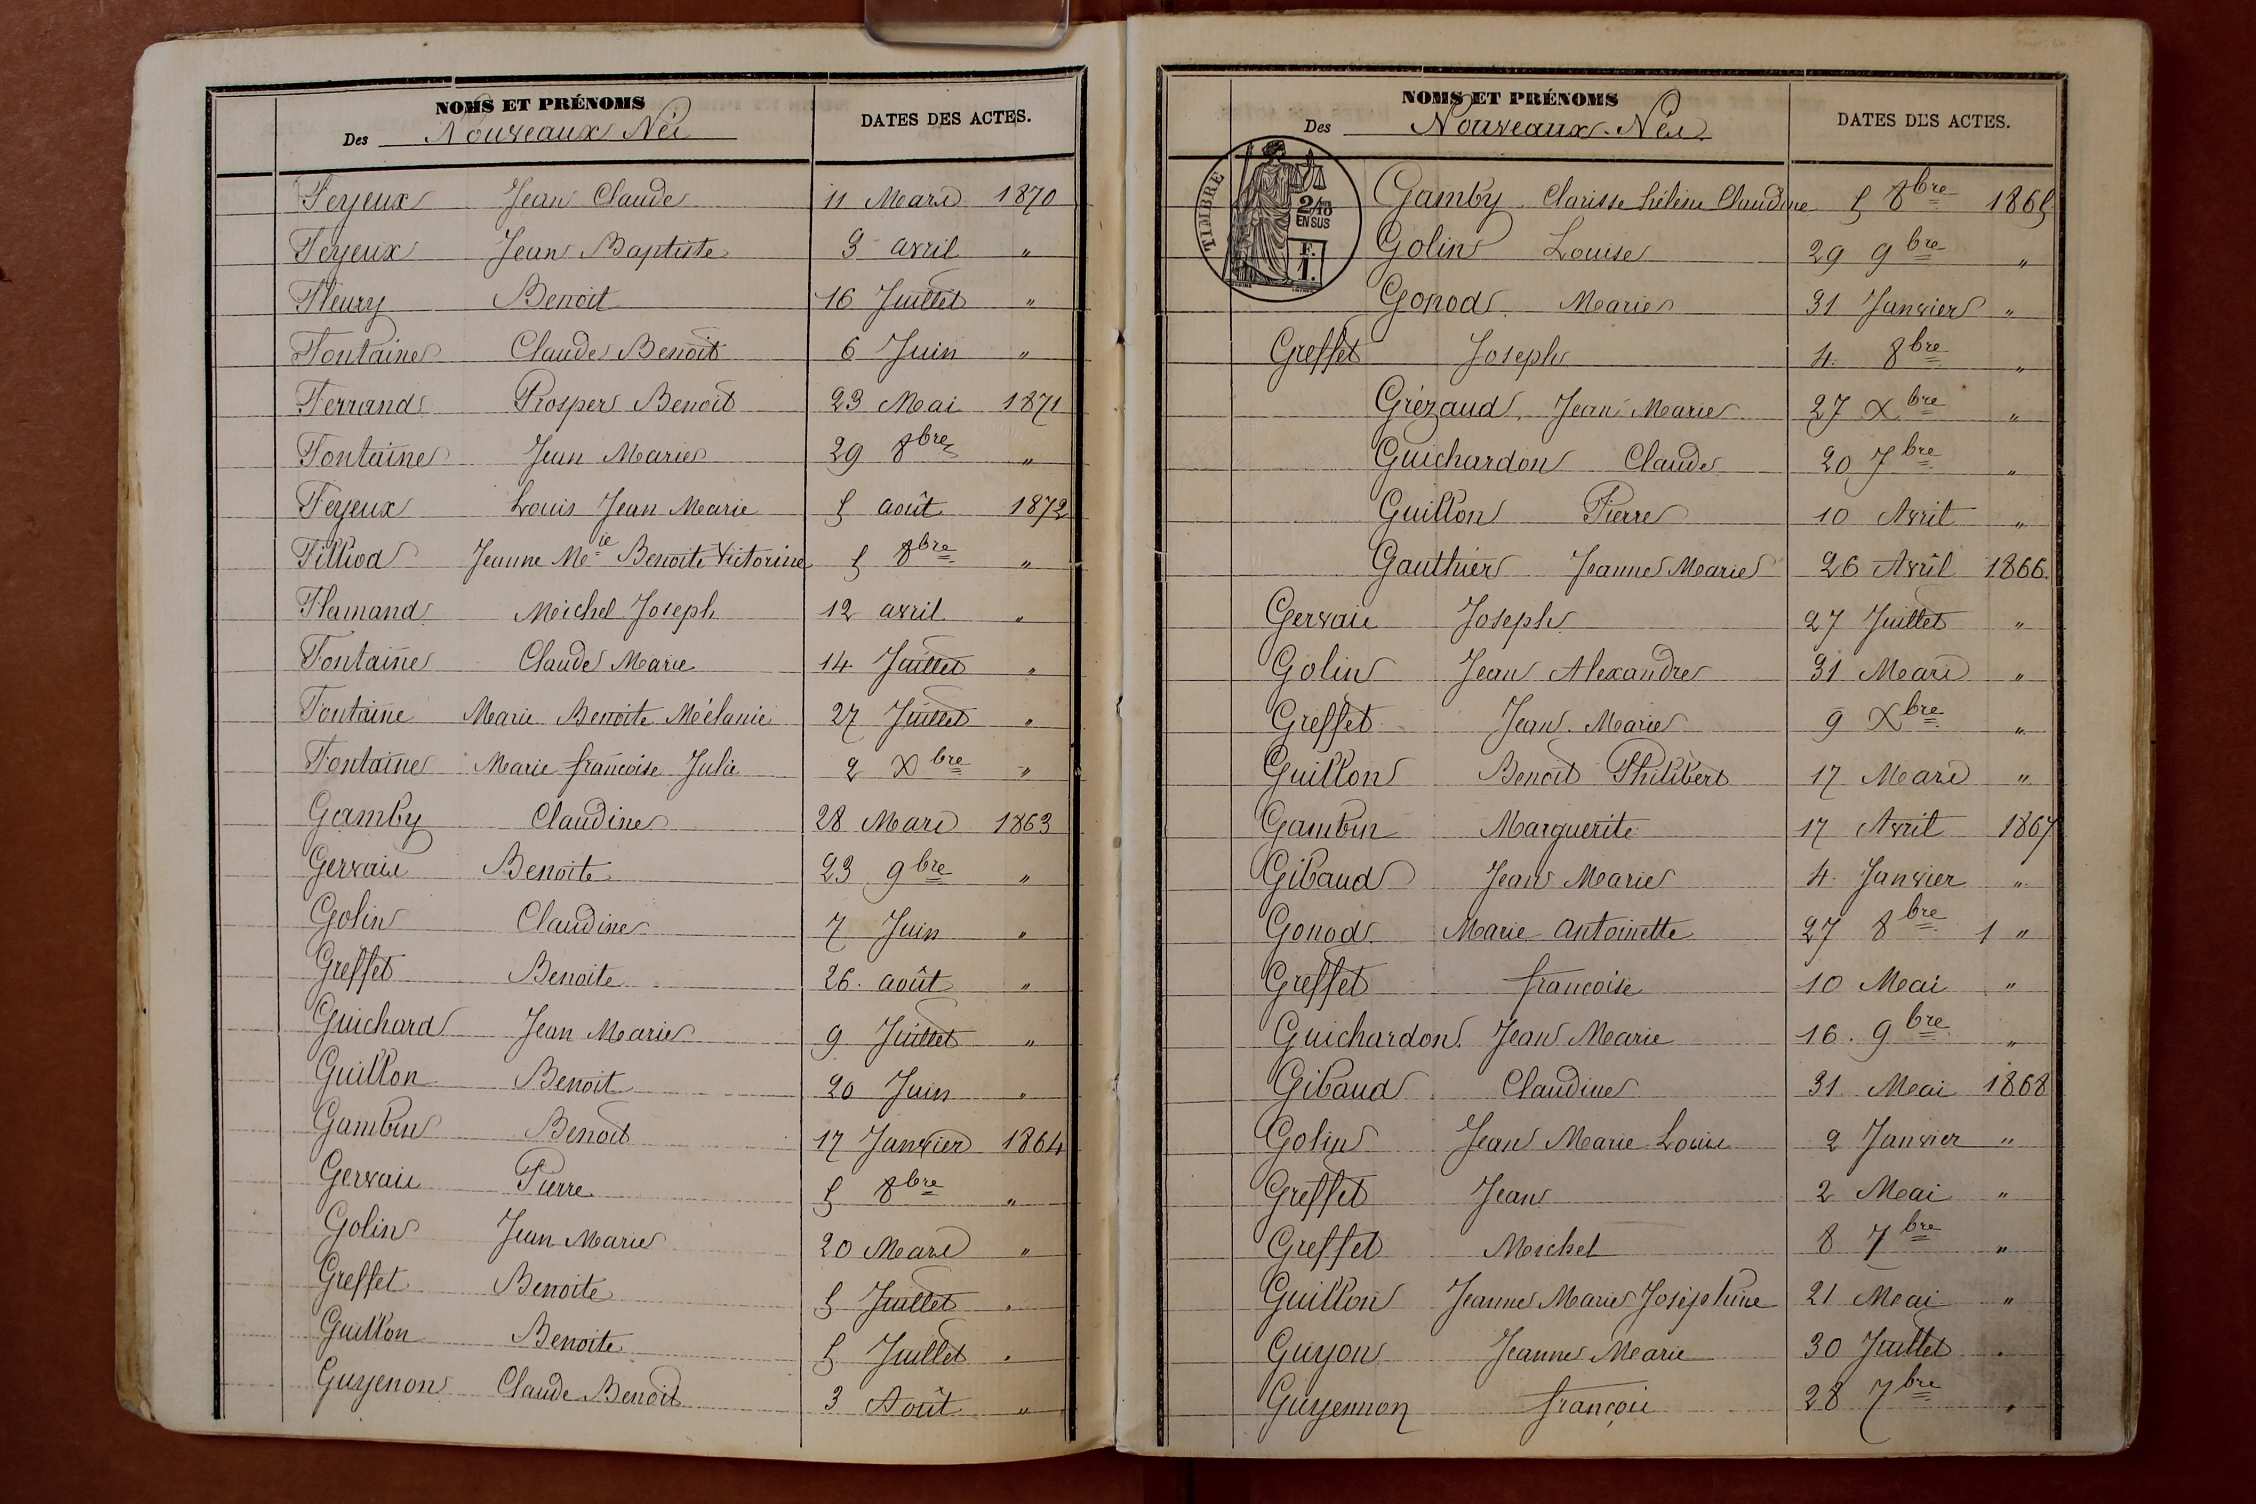 NOMS ET PRÉNOMS
Des Nouveaux Nés
DATES DES ACTES.
Feyeux Jean Claude 11 Mars 1870
Feyeux Jean Baptiste 3 avril "
Fleury Benoit 16 Juillet "
Fontaine Claude Benoît 6 Juin "
Ferrand Prosper Benoît 23 Mai 1871
Fontaine Jean Marie 29 8bre "
Feyeux Louis Jean Marie 5 août 1872
Filliod Jeanne Mie Benoite Victorine 5 8bre "
Flamand Michel Joseph 12 avril "
Fontaine Claude Marie 14 Juillet "
Fontaine Marie Benoite Mélanie 27 Juillet "
Fontaine Marie françoise Julie 2 Xbre "
Gamby Claudine 28 Mars 1863
Gervais Benoite 23 9bre "
Golin Claudine 7 Juin "
Greffet Benoite 26. août "
Guichard Jean Marie 9 Juillet "
Guillon Benoit 20 Juin "
Gambin Benoit 17 Janvier 1864
Gervais Pierre 5 8bre "
Golin Jean Marie 20 Mars "
Greffet Benoite 5 Juillet "
Guillon Benoite 5 Juillet "
Guyenon Claude Benoit 3 Août "
NOMS ET PRÉNOMS
Des Nouveaux-Nés
DATES DES ACTES.
TIMBRE
2/10
EN SUS
F.
1.
Gamby Clarisse hélène Claudine 5 8bre 1865
Golin Louise 29 9bre "
Gonod Marie 31 Janvier "
Greffet Joseph 4 8bre "
Grézaud Jean Marie 27 Xbre "
Guichardon Claude 20 7bre "
Guillon Pierre 10 Avril "
Gauthier Jeanne Marie 26 Avril 1866.
Gervais Joseph 27 Juillet "
Golin Jean Alexandre 31 Mars "
Greffet Jean Marie 9 Xbre "
Guillon Benoit Philibert 17 Mars "
Gambin Marguerite 17 Avril 1867
Gibaud Jean Marie 4 Janvier "
Gonod Marie Antoinette 27 8bre 1 "
Greffet françoise 10 Mai "
Guichardon Jean Marie 16. 9bre "
Gibaud Claudine 31 Mai 1868
Golin Jean Marie Louis 2 Janvier "
Greffet Jean 2 Mai "
Greffet Michel 8 7bre "
Guillon Jeanne Marie Joséphine 21 Mai "
Guyon Jeanne Marie 30 Juillet "
Guyennon françois 28 7bre "